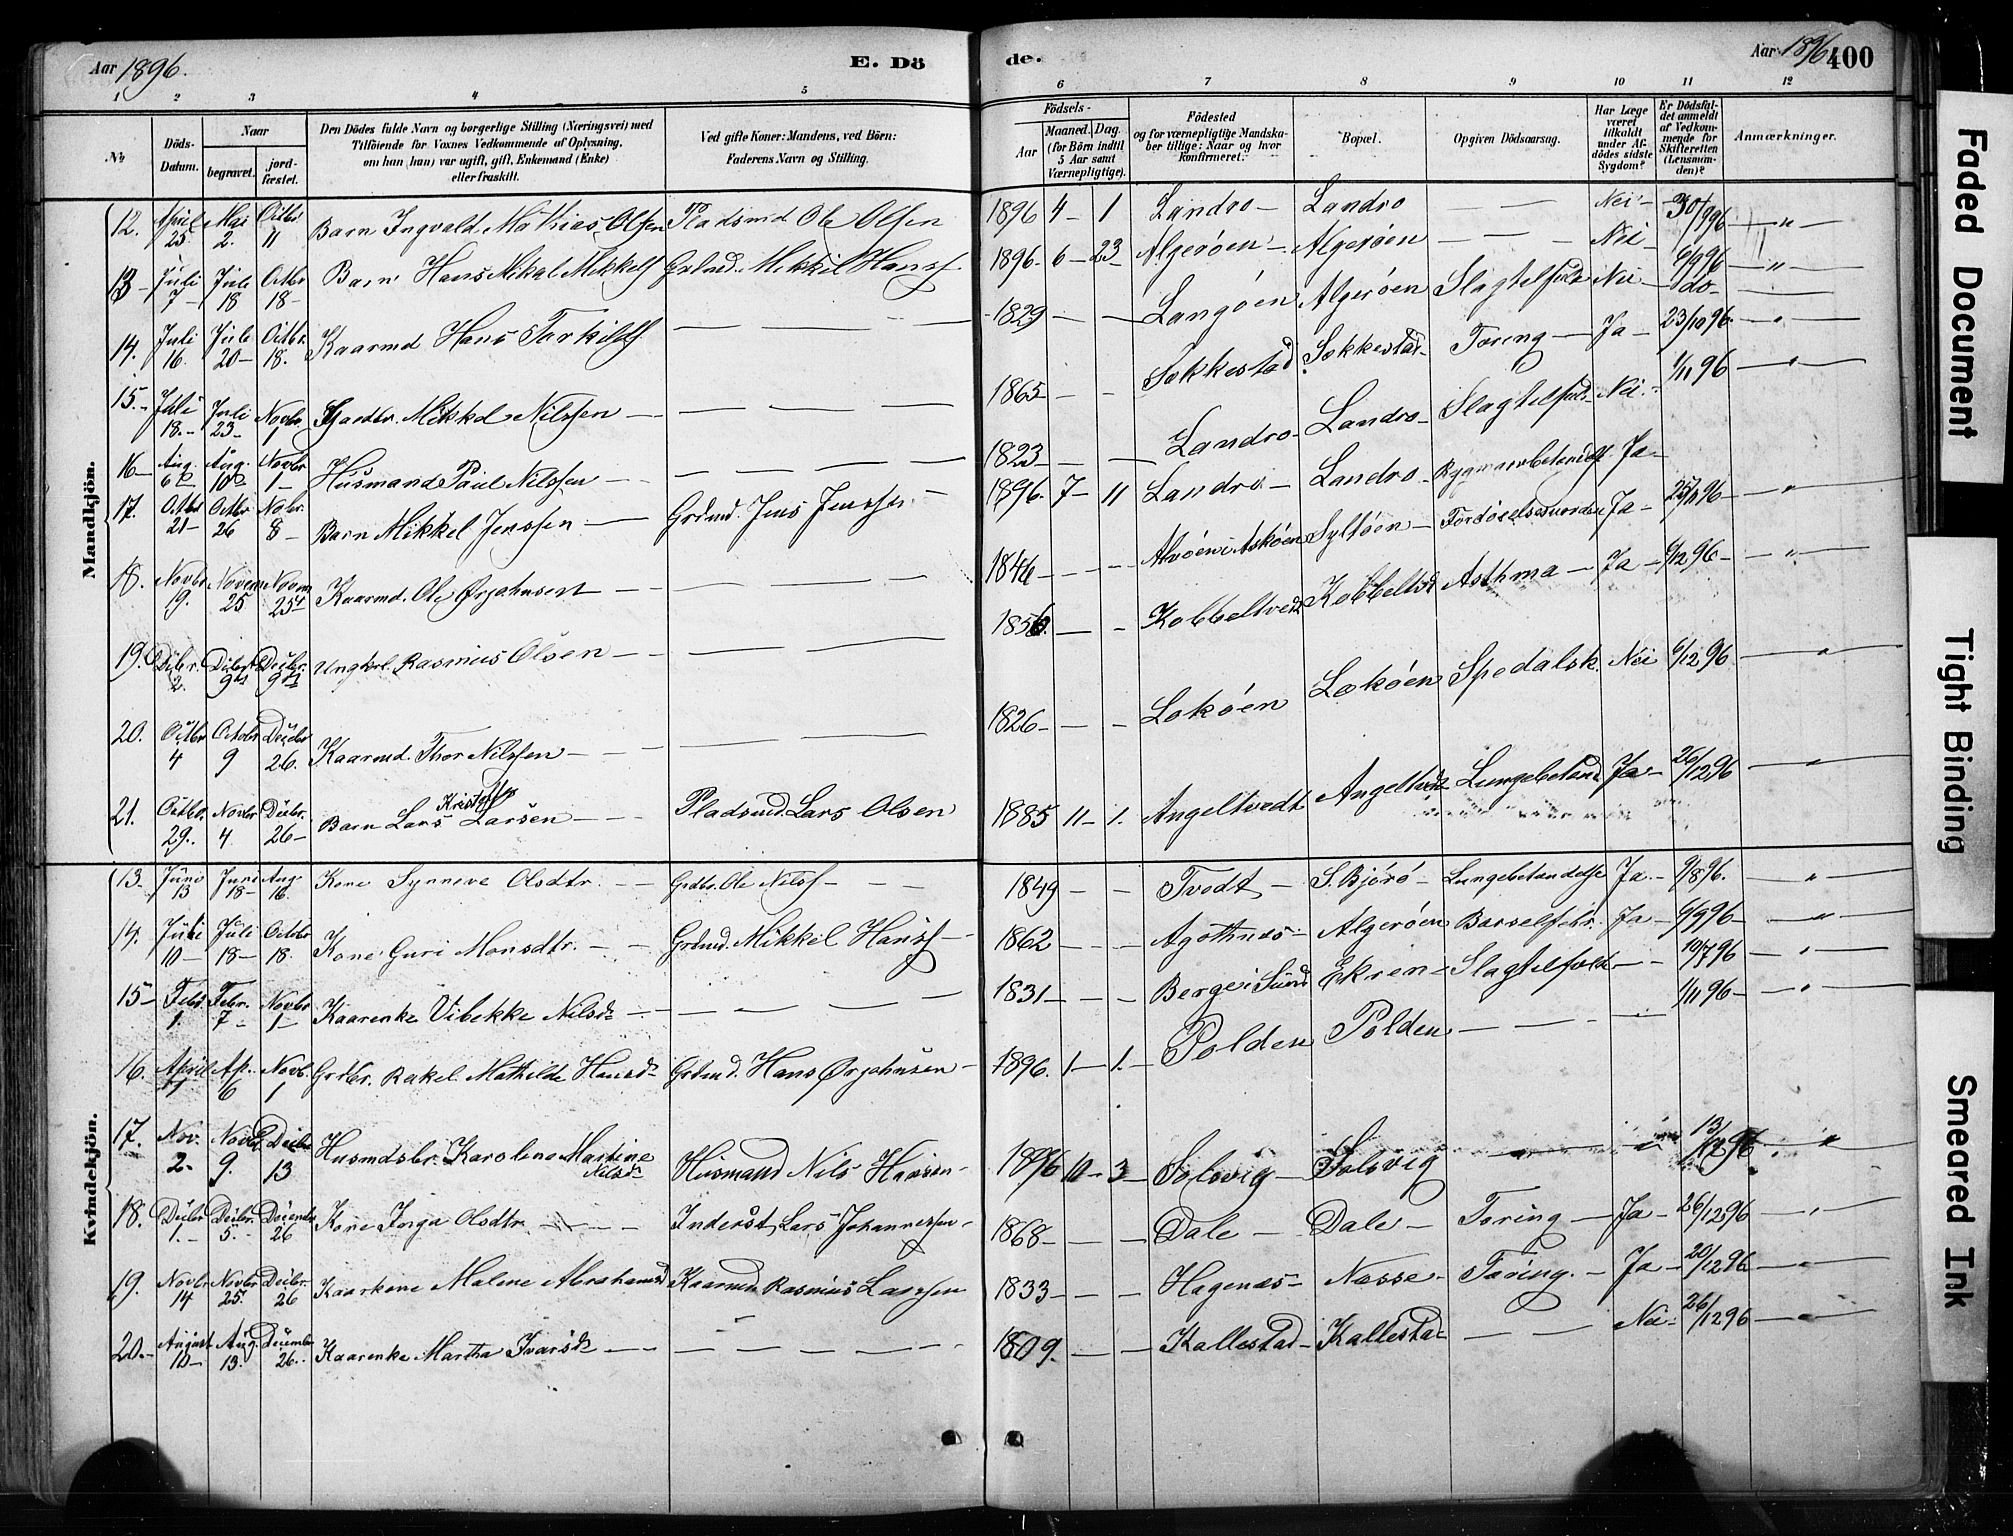 Aar 1896. E. Dö de. Aar 1896 400
1 2 3 4 5 6 7 8 9 10 11 12
No Döds-Datum. Naar begravet. jord-fæstet. Den Dödes fulde Navn og borgerlige Stilling (Næringsvei) med Tilföiende for Voxnes Vedkommende af Oplysning, om han (hun) var ugift, gift, Enkemand (Enke) eller fraskilt. Ved gifte Koner: Mandens, ved Börn: Faderens Navn og Stilling. Födsels- Aar Maaned. Dag. (for Börn indtil 5 Aar samt Værnepligtige). Födested og for værnepligtige Mandskaber tillige: Naar og hvor konfirmeret. Bopæl. Opgiven Dödsaarsag. Har Læge været tilkaldt under Afdödes sidste Sygdom? Er Dödsfaldet anmeldt af Vedkommende for Skifteretten (Lensmanden)? Anmærkninger.
Mandkjön.
12. April 25 Mai 2. Octbr 11 Barn Ingvald Mathias Olsen Pladsmd Ole Olsen 1896 4 - 1 Landro - Landro - - Nei - 30/9 96 - " -
13 - Juli 7 - Juli 18 Octbr 18 - Barn Hans Mikal Mikkels Grdmd. Mikkel Hanss 1896 - 6 - 23 - Algerøen - Algerøen - - Nei - 6/9 96 - " -
14. Juli 16. Juli 20 - Octbr. 18. Kaarmd Hans Torkilds - - - 1829 - - Langøen Algerøen Slagtilfælde Nei - do -
15. - Juli 18. - Juli 23 - Novbr. 1 Mikkel Nilssen - - - 1865 - - Sekkestad Sekkestad - Tæring - Ja - 23/10 96. - " -
16 - Aug. 6 Aug. 10 Novbr 1 - Husmand Paul Nilssen - - - 1823 - - Landro - Landro - Slagtilfæld. Nei - 1/11 96 - " -
17. Octbr 21 - Octbr 26 Nobr. 8 - Barn Mikkel Jenssen - Grdmd. Jens Jenssen - 1896. 7 - 11 Landro - Landro - Ja -
18. Novbr 19. Novem 25 Novm 25 Kaarmd. Ole Ørjahnsen - - - 1846 - - - Syltøen - Ja - 25/11 96 - " -
19. Decbr. 2. Decbr 9 Decbr. 9 Ungkrl. Rasmus Olsen - - - 1856. - - Kobbeltvedt Kobbeltvdt Asthma - Ja - 6/12 96 - - " -
20. Octbr 4 Octobr 9 Decbr 26. Kaarmd. Thor Nilssen - - - 1826 - - - Lokøen Lokøen Spedalsk. Nei 6/12 96 - " -
21. Octbr. 29. Novbr 4 Decbr. 26 - Barn Lars Kristofer Larsen - - Pladsmd. Lars Olsen 1885 11 - 1. Angeltvedt Angeltvedt Lungebetænd. Ja - 26/12 96 - " -
Kvindekjön.
13. Juni 13 Juni 18 - Aug. 16. Kone Synneve Olsdtr. - - Grdbr. Ole Nilss - - - 1849 - - Tvedt - S. Bjørø - Lungebetændelse Ja - 9/8 96. - " -
14. Juli 10 - Juli 18 - Octbr 18. Kone Guri Monsdtr. - - Grdmd. Mikkel Hanss - 1862 - - - Agothnes - Algerøen Barselfebr. Ja - 6/9 96 - - " -
15 - Febr. 1. Febr. 7 - Novbr 1 - Kaarenke Vibekke Nilsd. - - - 1831 - - - Berge i Sund Ekren - Slagtilfæld - - 19/7 96 - " -
16. April 1 Ap. 6 Novb. 1 Grdbr. Rakel Mathilde Hansd - Grdmd. Hans Ørjahnsen - 1896. 1 - 1. - Polden Polden - - - 1/11 96 - - " -
17. Nov. 2 - Novbr 9. Decbr 13 Husmdsbr. Karoline Martine Nilsd - Husmand Nils Hansen - 1896 10 - 3 - Solsvig - Solsvig - - 13/12 96 - "
18. Decbr 1. - Decbr. 5. - Decembr 26 Kone Inga Olsdtr. - - - Inderst Lars Johannessen - 1868 - - - Dale - Dale - Tæring - Ja - 26/12 96 - " -
19. Novbr. 14 Novbr 25. Decbr. 26 Kaarkone Malene Abrahamsd Kaarmd. Rasmus Larssen 1833 - - - Hagenæs - Næsse - Tæring. - Ja - 20/12 96 - " -
20. - August 10 - Aug. 13. Decembr 26. Kaarenke Martha Ivarsd - - - 1809. - - Kallestad - Kallestad - - Nei - 26/12 96 - " -
Faded Document
Tight Binding
Smeared Ink